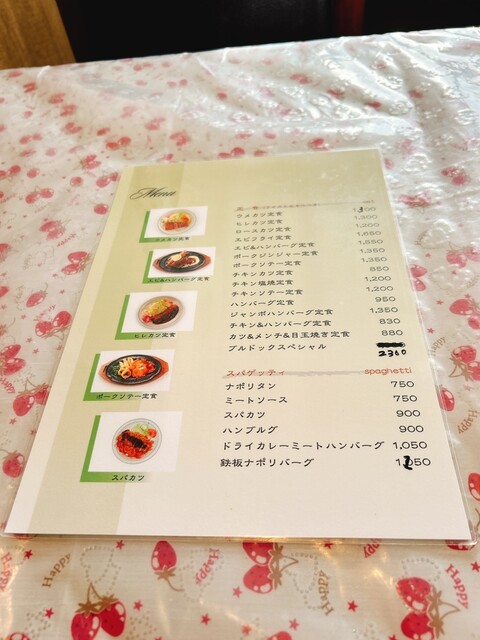 Menu
定 食
ウメカツ定食 1,300
ヒレカツ定食 1,300
ロースカツ定食 1,200
エビフライ定食 1,650
エビ&ハンバーグ定食 1,650
ポークジンジャー定食 1,350
ポークソテー定食 1,350
チキンカツ定食 850
チキン塩焼定食 1,200
チキンソテー定食 1,200
ハンバーグ定食 950
ジャンボハンバーグ定食 1,350
チキン&ハンバーグ定食 830
カツ&メンチ&目玉焼き定食 880
ブルドックスペシャル
2300
スパゲッティ spaghetti
ナポリタン 750
ミートソース 750
スパカツ 900
ハンブルグ 900
ドライカレーミートハンバーグ 1,050
鉄板ナポリバーグ 1,250
ウメカツ定食
エビ&ハンバーグ定食
ヒレカツ定食
ポークソテー定食
スパカツ
Happy
Happy
Happy
Happy
Happy